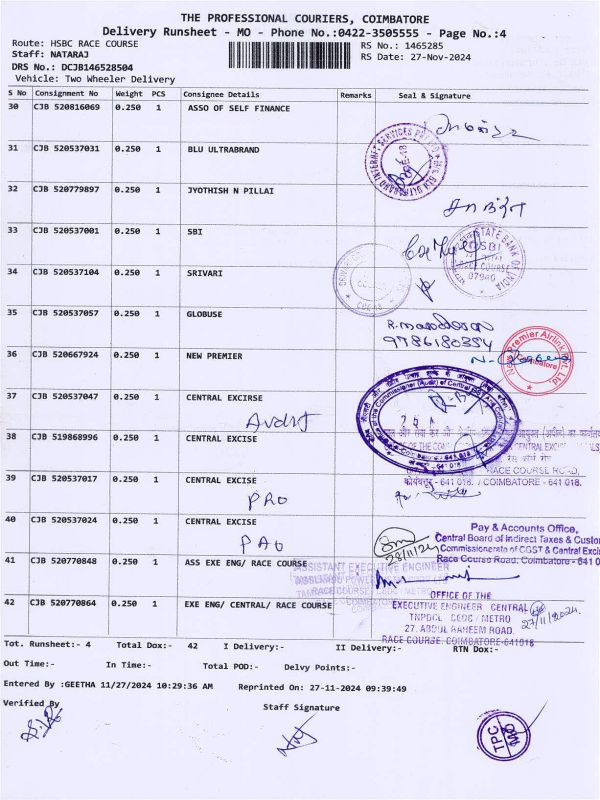 THE PROFESSIONAL COURIERS, COIMBATORE
Delivery Runsheet - MO - Phone No.:0422-3505555 - Page No.:4
Route: HSBC RACE COURSE RS No.: 1465285
Staff: NATARAJ RS Date: 27-Nov-2024
DRS No.: DCJB146528504
Vehicle: Two Wheeler Delivery
S No Consignment No Weight PCS Consignee Details Remarks Seal & Signature
30 CJB 520816069 0.250 1 ASSO OF SELF FINANCE
31 CJB 520537031 0.250 1 BLU ULTRABRAND
32 CJB 520779897 0.250 1 JYOTHISH N PILLAI
33 CJB 520537001 0.250 1 SBI
STATE BANK OF INDIA
SBI
RACE COURSE
34 CJB 520537104 0.250 1 SRIVARI
35 CJB 520537057 0.250 1 GLOBUSE
9786180354
36 CJB 520667924 0.250 1 NEW PREMIER
New Premier Airlink Pvt. Ltd.
Coimbatore
37 CJB 520537047 0.250 1 CENTRAL EXCIRSE
Audit
38 CJB 519868996 0.250 1 CENTRAL EXCISE
RACE COURSE ROAD,
कोयंबत्तूर - 641 018. / COIMBATORE - 641 018.
39 CJB 520537017 0.250 1 CENTRAL EXCISE
PRO
40 CJB 520537024 0.250 1 CENTRAL EXCISE
PAO
28/11/24
Pay & Accounts Office,
Central Board of Indirect Taxes & Custo
Commissionerate of CGST & Central Exci
Race Course Road, Coimbatore - 641 0
41 CJB 520770848 0.250 1 ASS EXE ENG/ RACE COURSE
ASSISTANT EXECUTIVE ENGINEER
42 CJB 520770864 0.250 1 EXE ENG/ CENTRAL/ RACE COURSE
OFFICE OF THE
EXECUTIVE ENGINEER CENTRAL
TNPDCL CEDC / METRO
27, ABDUL RAHEEM ROAD.
RACE COURSE, COIMBATORE-641018
27/11/2024
Tot. Runsheet:- 4 Total Dox:- 42 I Delivery:- II Delivery:- RTN Dox:-
Out Time:- In Time:- Total POD:- Delvy Points:-
Entered By :GEETHA 11/27/2024 10:29:36 AM Reprinted On: 27-11-2024 09:39:49
Verified By Staff Signature
TPC
MO